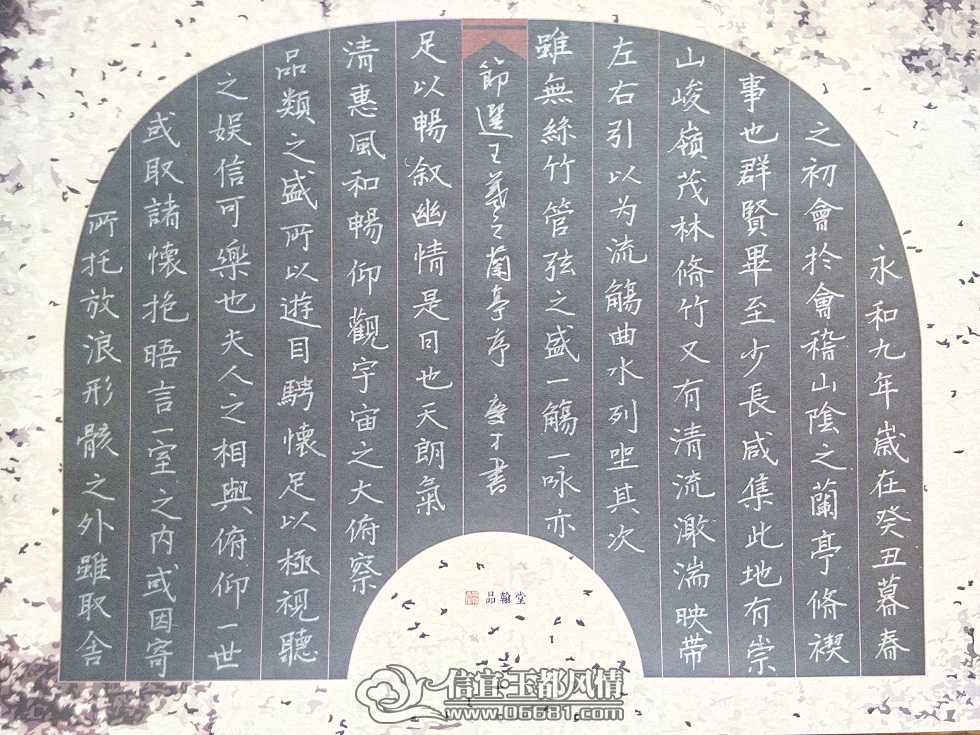 永和九年嵗在癸丑暮春
之初會扵會稽山陰之蘭亭脩禊
事也群賢畢至少長咸集此地有崇
山峻嶺茂林脩竹又有清流激湍映带
左右引以为流觴曲水列坐其次
雖無絲竹管弦之盛一觴一咏亦
節選王羲之蘭亭序 才書
足以暢叙幽情是日也天朗氣
清惠風和暢仰觀宇宙之大俯察
品類之盛所以遊目騁懷足以極視聽
之娱信可樂也夫人之相與俯仰一世
或取諸懷抱晤言一室之内或因寄
所托放浪形骸之外雖取舍
品翰堂
信宜·玉都风情
www.06681.com